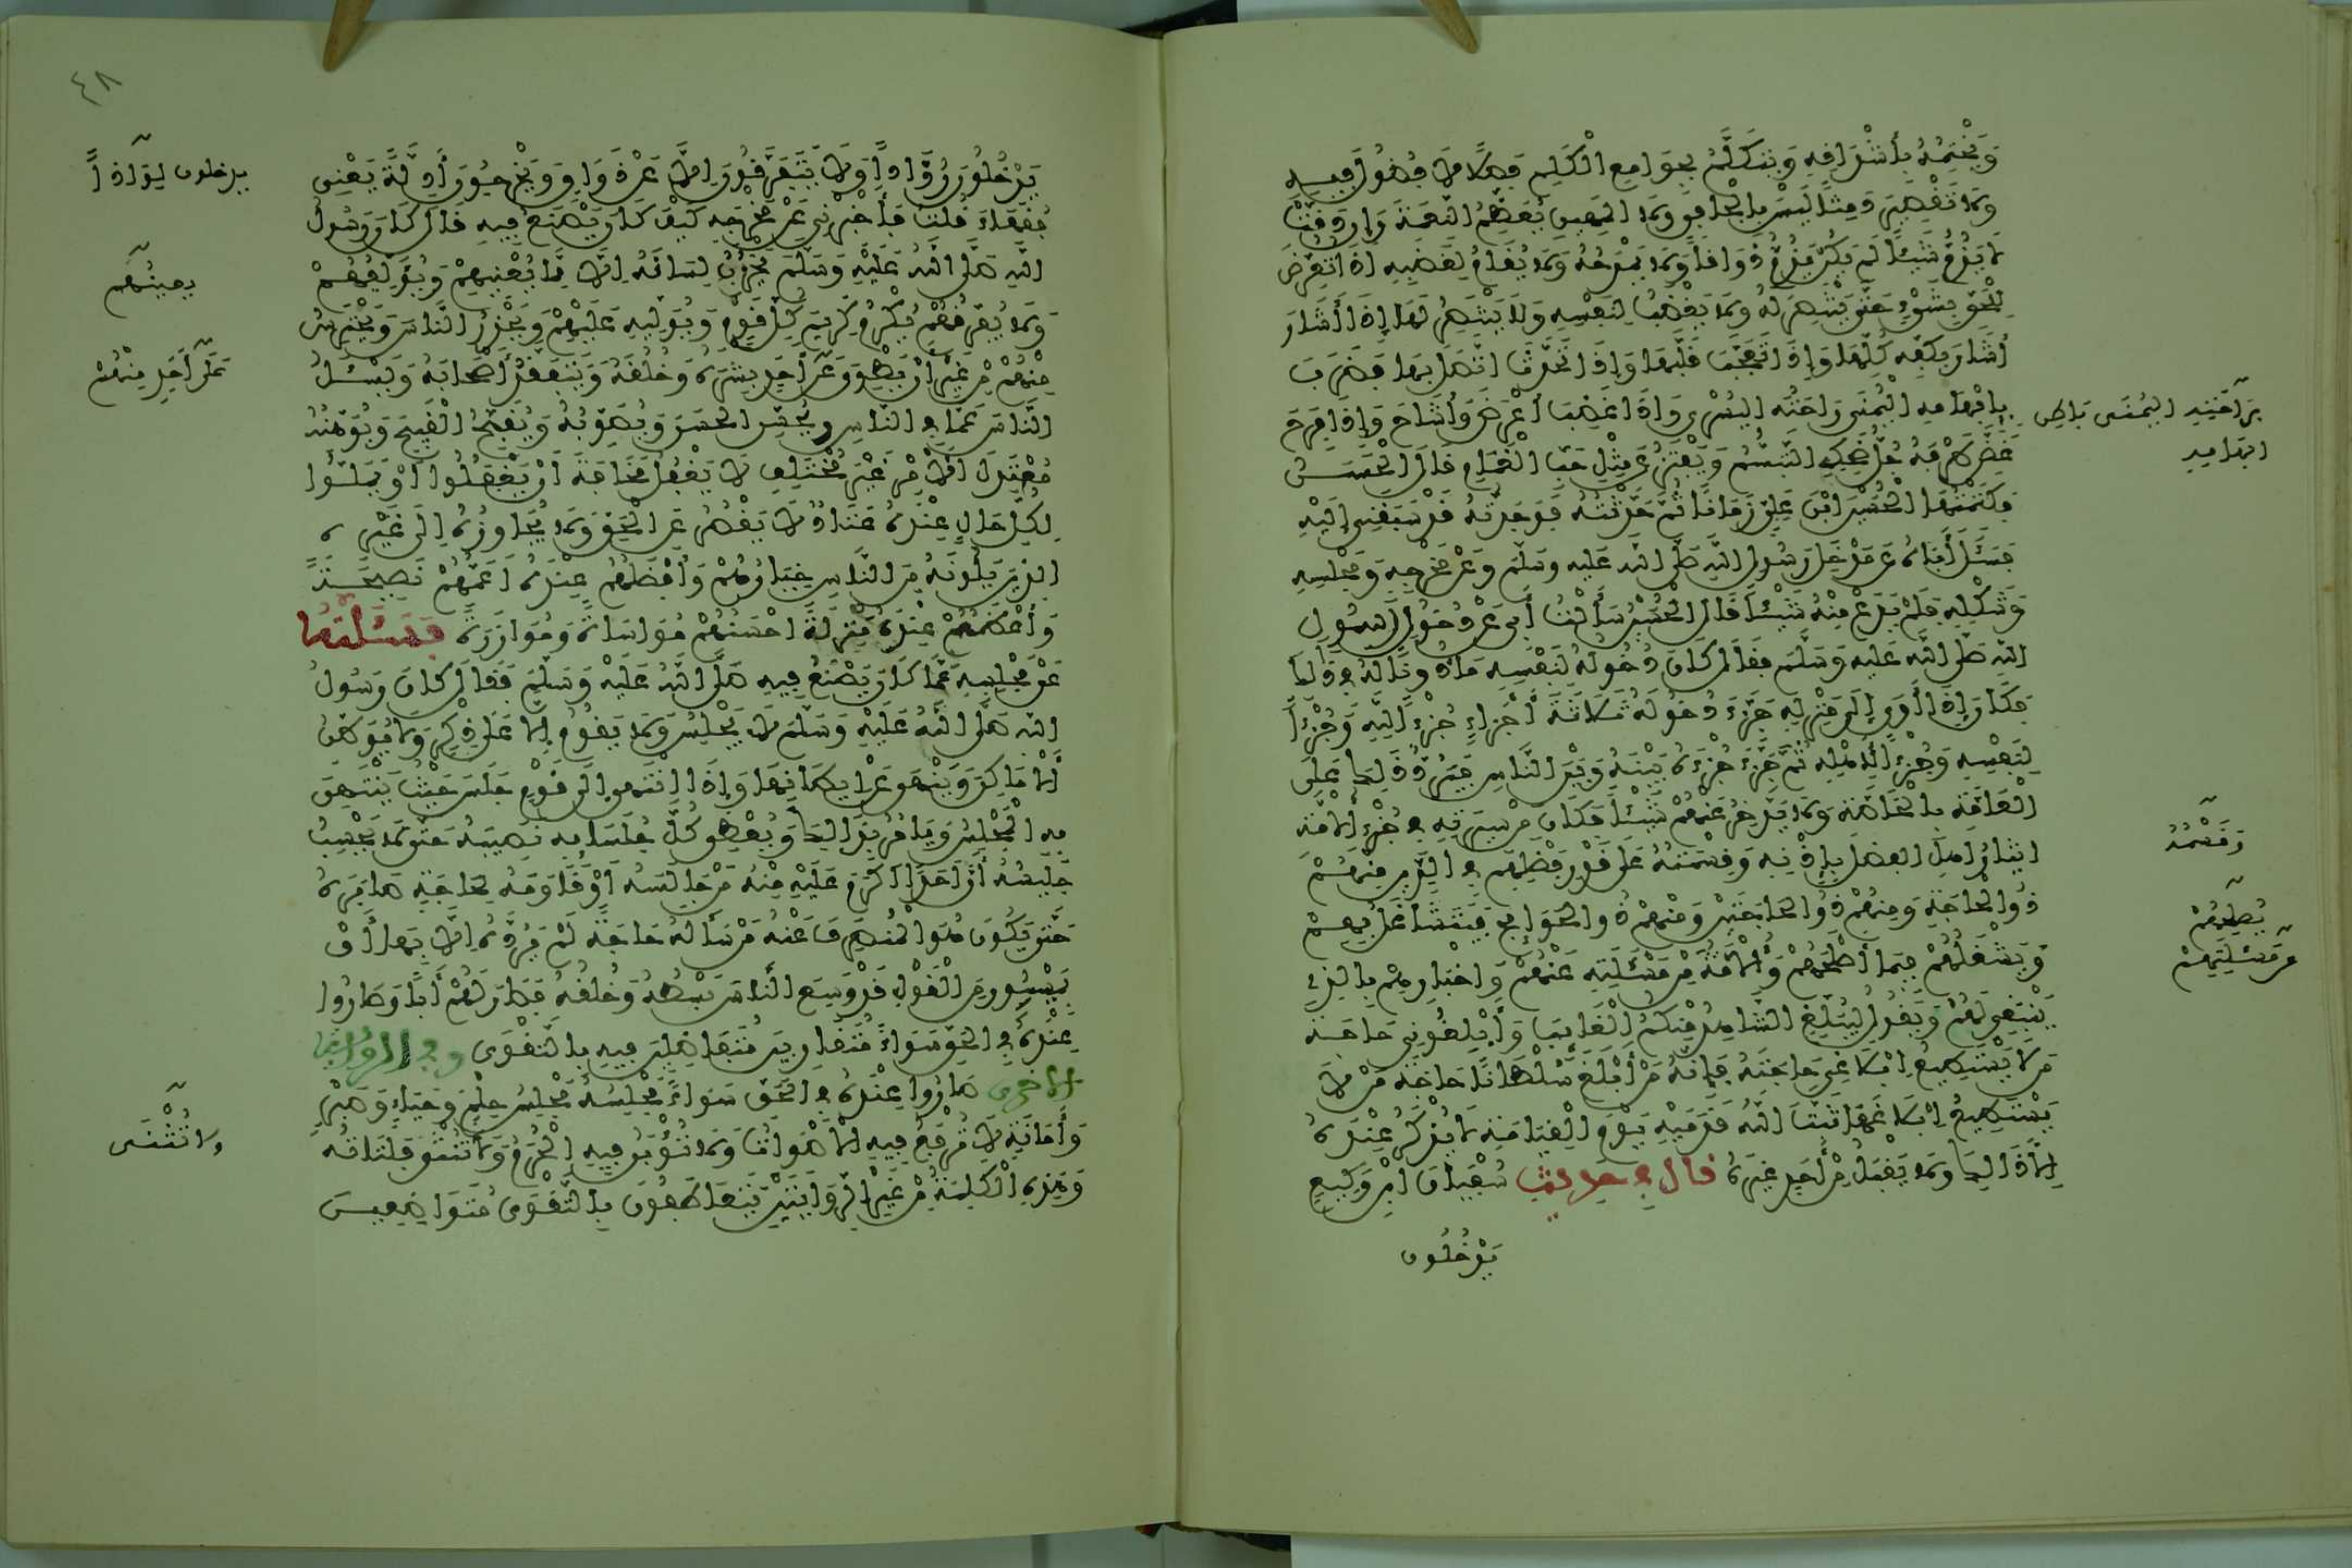 وَيَخْتِمُهُ بِأَشْدَافِهِ وَيَتَكَلَّمُ بِجَوَامِعِ الْكَلِمِ فَصْلًا لَا فُضُولَ فِيهِ
وَلَا تَقْصِيرَ دَمِثًا لَيْسَ بِالْجَافِي وَلَا الْمَهِينِ يُعَظِّمُ النِّعْمَةَ وَإِن دَقَّتْ
لَا يَذُمُّ شَيْئًا لَمْ يَكُنْ يَذُمُّ ذَوَاقًا وَلَا يَمْدَحُهُ وَلَا يُقَامُ لِغَضَبِهِ إِذَا تُعُرِّضَ
لِلْحَقِّ بِشَيْءٍ حَتَّى يَنْتَصِرَ لَهُ وَلَا يَغْضَبُ لِنَفْسِهِ وَلَا يَنْتَصِرُ لَهَا إِذَا أَشَارَ
أَشَارَ بِكَفِّهِ كُلِّهَا وَإِذَا تَعَجَّبَ قَلَبَهَا وَإِذَا تَحَدَّثَ اتَّصَلَ بِهَا فَضَرَبَ
بِإِبْهَامِهِ الْيُمْنَى رَاحَتَهُ الْيُسْرَى وَإِذَا غَضِبَ أَعْرَضَ وَأَشَاحَ وَإِذَا فَرِحَ
بِرَاحَتِهِ اليُمْنَى بَاطِنَ
ابهامه
غَضَّ طَرْفَهُ جُلُّ ضَحِكِهِ التَّبَسُّمُ وَيَفْتَرُّ عَن مِثْلِ حَبِّ الْغَمَامِ قَالَ الْحَسَنُ
فَكَتَمْتُهَا الْحُسَيْنَ ابْنَ عَلِيٍّ زَمَانًا ثُمَّ حَدَّثْتُهُ فَوَجَدْتُهُ قَدْ سَبَقَنِي إِلَيْهِ
فَسَأَلَ أَبَاهُ عَن مَدْخَلِ رَسُولِ اللَّهِ صَلَّى اللَّهُ عَلَيْهِ وَسَلَّمَ وَعَنْ مَخْرَجِهِ وَمَجْلِسِهِ
وَشَكْلِهِ فَلَمْ يَدَعْ مِنْهُ شَيْئًا قَالَ الْحُسَيْنُ سَأَلْتُ أَبِي عَنْ دُخُولِ رَسُولِ
اللَّهِ صَلَّى اللَّهُ عَلَيْهِ وَسَلَّمَ فَقَالَ كَانَ دُخُولُهُ لِنَفْسِهِ مَأْذُونًا لَهُ فِي ذَلِكَ
فَكَانَ إِذَا أَوَى إِلَى مَنْزِلِهِ جَزَّءَ دُخُولَهُ ثَلَاثَةَ أَجْزَاءٍ جُزْءًا لِلَّهِ وَجُزْءًا
لِنَفْسِهِ وَجُزْءًا لِأَهْلِهِ ثُمَّ جَزَّءَ جُزْءَهُ بَيْنَهُ وَبَيْنَ النَّاسِ فَيَرُدُّ ذَلِكَ عَلَى
الْعَامَّةِ بِالْخَاصَّةِ وَلَا يَدَّخِرُ عَنْهُمْ شَيْئًا فَكَانَ مِنْ سِيرَتِهِ فِي جُزْءِ الْأُمَّةِ
إِيثَارُ أَهْلِ الْفَضْلِ بِإِذْنِهِ وَقِسْمَتُهُ عَلَى قَدْرِ فَضْلِهِمْ فِي الدِّينِ مِنْهُمْ
وَقَسْمُهُ
ذُو الْحَاجَةِ وَمِنْهُمْ ذُو الْحَاجَتَيْنِ وَمِنْهُمْ ذُو الْحَوَائِجِ فَيَتَشَاغَلُ بِهِمْ
وَيَشْغَلُهُمْ فِيمَا أَصْلَحَهُمْ وَالْأُمَّةَ مِنْ مَسْأَلَتِهِ عَنْهُمْ وَإِخْبَارِهِمْ بِالَّذِي
يُصْلِحُهُمْ
مِن مَسْئَلَتِهِمْ
يَنْبَغِي لَهُمْ وَيَقُولُ لِيُبَلِّغِ الشَّاهِدُ مِنْكُمُ الْغَائِبَ وَأَبْلِغُونِي حَاجَةَ
مَن لَا يَسْتَطِيعُ إِبْلَاغِي حَاجَتَهُ فَإِنَّهُ مَنْ أَبْلَغَ سُلْطَانًا حَاجَةَ مَنْ لَا
يَسْتَطِيعُ إِبْلَاغَهَا ثَبَّتَ اللَّهُ قَدَمَيْهِ يَوْمَ الْقِيَامَةِ لَا يُذْكَرُ عِنْدَهُ
إِلَّا ذَلِكَ وَلَا يَقْبَلُ مِنْ أَحَدٍ غَيْرَهُ قال في حديث سُفْيَانَ ابْنِ وَكِيعٍ
يَدْخُلُون
٤٨
يَدْخُلُونَ رُوَّادًا وَلَا يَتَفَرَّقُونَ إِلَّا عَنْ ذَوَاقٍ وَيَخْرُجُونَ أَدِلَّةً يَعْنِي
يدخلون لِوَاذًا
فُقَهَاءَ قُلْتُ فَأَخْبِرْنِي عَنْ مَخْرَجِهِ كَيْفَ كَانَ يَصْنَعُ فِيهِ قَالَ كَانَ رَسُولُ
اللَّهِ صَلَّى اللَّهُ عَلَيْهِ وَسَلَّمَ يَخْزُنُ لِسَانَهُ إِلَّا مِمَّا يَعْنِيهِمْ وَيُؤَلِّفُهُمْ
يعينهم
وَلَا يُفَرِّقُهُمْ يُكْرِمُ كَرِيمَ كُلِّ قَوْمٍ وَيُوَلِّيهِ عَلَيْهِمْ وَيَحْذَرُ النَّاسَ وَيَحْتَرِسُ
مِنْهُمْ مِنْ غَيْرِ أَنْ يَطْوِيَ عَنْ أَحَدٍ بِشْرَهُ وَخُلُقَهُ وَيَتَفَقَّدُ أَصْحَابَهُ وَيَسْئَلُ
عَلَى أَحَدٍ مِنْهُمْ
النَّاسَ عَمَّا فِي النَّاسِ وَيُحَسِّنُ الْحَسَنَ وَيُصَوِّبُهُ وَيُقَبِّحُ الْقَبِيحَ وَيُوَهِّنُهُ
مُعْتَدِلَ الْأَمْرِ غَيْرَ مُخْتَلِفٍ لَا يَغْفُلُ مَخَافَةَ أَنْ يَغْفُلُوا أَوْ يَمَلُّوا
لِكُلِّ حَالٍ عِنْدَهُ عَتَادٌ لَا يُقَصِّرُ عَنِ الْحَقِّ وَلَا يُجَاوِزُهُ إِلَى غَيْرِهِ
الَّذِينَ يَلُونَهُ مِنَ النَّاسِ خِيَارُهُمْ وَأَفْضَلُهُمْ عِنْدَهُ أَعَمُّهُمْ نَصِيحَةً
وَأَعْظَمُهُمْ عِنْدَهُ مَنْزِلَةً أَحْسَنُهُمْ مُوَاسَاةً وَمُوَازَرَةً فَسَأَلْتُهُ
عَنْ مَجْلِسِهِ عَمَّا كَانَ يَصْنَعُ فِيهِ صَلَّى اللَّهُ عَلَيْهِ وَسَلَّمَ فَقَالَ كَانَ رَسُولُ
اللَّهِ صَلَّى اللَّهُ عَلَيْهِ وَسَلَّمَ لَا يَجْلِسُ وَلَا يَقُومُ إِلَّا عَلَى ذِكْرٍ وَلَا يُوَطِّنُ
الْأَمَاكِنَ وَيَنْهَى عَنْ إِيطَانِهَا وَإِذَا انْتَهَى إِلَى قَوْمٍ جَلَسَ حَيْثُ يَنْتَهِي
بِهِ الْمَجْلِسُ وَيَأْمُرُ بِذَلِكَ وَيُعْطِي كُلَّ جُلَسَائِهِ نَصِيبَهُ حَتَّى لَا يَحْسِبُ
جَلِيسُهُ أَنَّ أَحَدًا أَكْرَمَ عَلَيْهِ مِنْهُ مَنْ جَالَسَهُ أَوْ قَاوَمَهُ لِحَاجَةٍ صَابَرَهُ
حَتَّى يَكُونَ هُوَ الْمُنْصَرِفَ عَنْهُ مَنْ سَأَلَهُ حَاجَةً لَمْ يَرُدَّهُ إِلَّا بِهَا أَوْ
بِمَيْسُورٍ مِنَ الْقَوْلِ قَدْ وَسِعَ النَّاسَ بَسْطُهُ وَخُلُقُهُ فَصَارَ لَهُمْ أَبًا وَصَارُوا
عِنْدَهُ فِي الْحَقِّ سَوَاءً مُتَقَارِبِينَ مُتَفَاضِلِينَ فِيهِ بِالتَّقْوَى وفي الرواية
الأخرى صَارُوا عِنْدَهُ فِي الْحَقِّ سَوَاءً مَجْلِسُهُ مَجْلِسُ حِلْمٍ وَحَيَاءٍ وَصَبْرٍ
وَأَمَانَةٍ لَا تُرْفَعُ فِيهِ الْأَصْوَاتُ وَلَا تُؤْبَنُ فِيهِ الْحُرَمُ وَلَا تُنْثَى فَلَتَاتُهُ
ولا تُثْنَى
وَهَذِهِ الْكَلِمَةُ مِنْ غَيْرِ الرِّوَايَتَيْنِ يَتَعَاطَفُونَ بِالتَّقْوَى مُتَوَاضِعِينَ